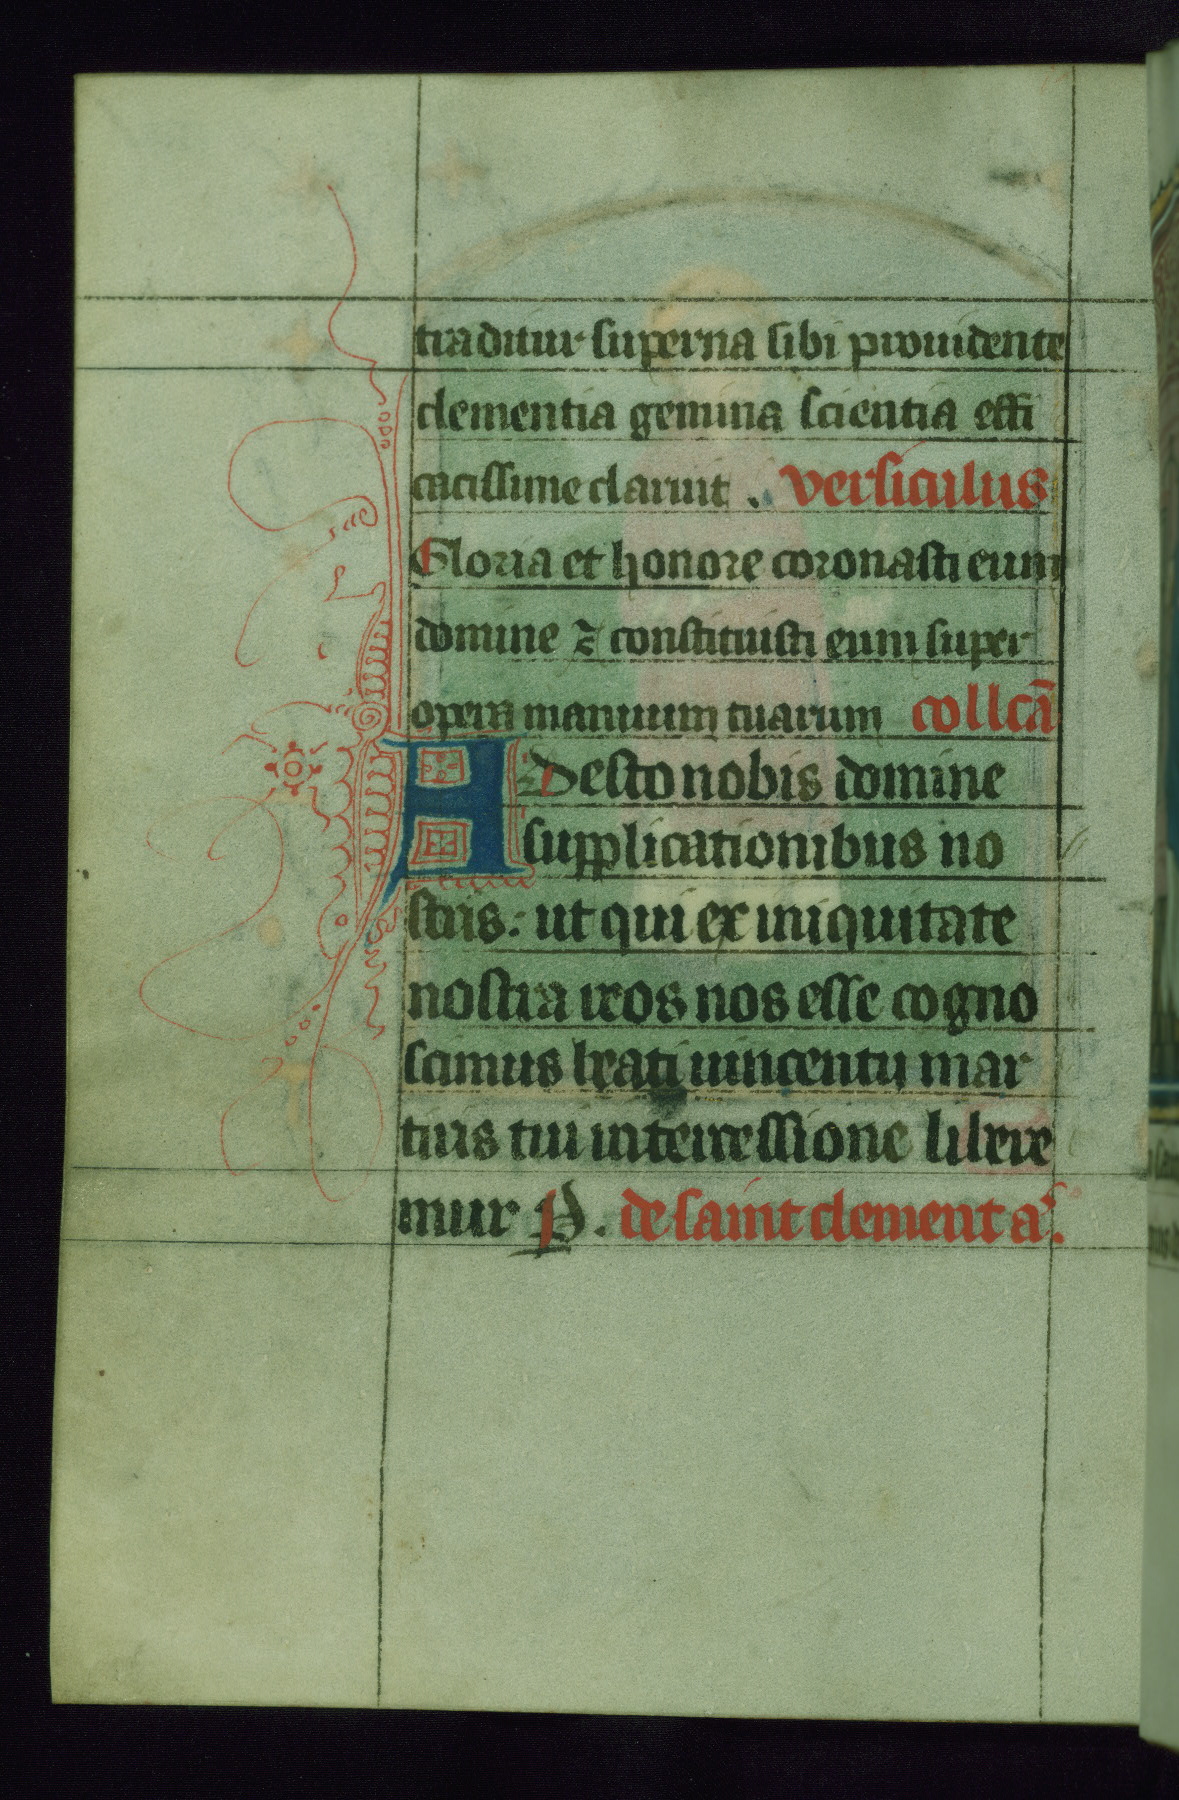 traditur superna sibi prouidente
clementia gemina scientia effi
cacissime claruit . versiculus
Gloria et honore coronasti eum
domine ⁊ constituisti eum super
opera manuum tuarum collcā
Adesto nobis domine
supplicationibus no
stris : ut qui ex iniquitate
nostra reos nos esse cogno
scimus beati uincentij mar
tiris tui intercessione libere
mur P . de saint clement aͬ.